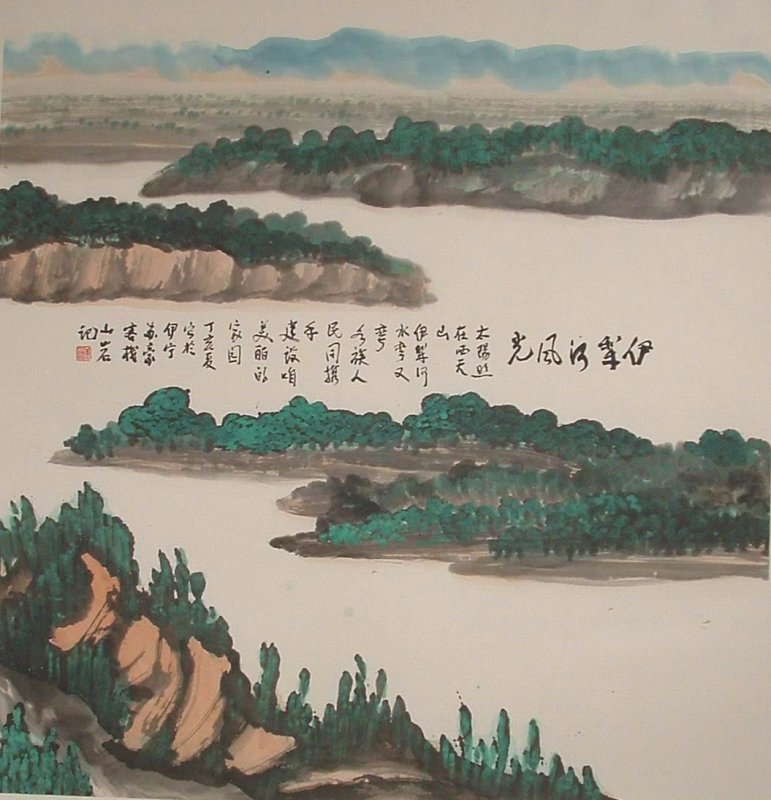 伊犁河风光
太阳照
在西天
山
伊犁河
水弯又
弯
各族人
民同携
手
建设咱
美丽的
家园
丁亥夏
写于
伊宁
苏家
客栈
山石
记